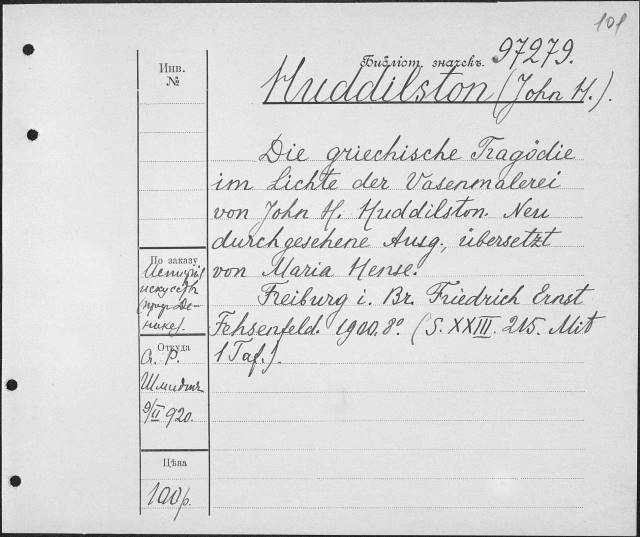 101
Библіот. значекъ. 97279.
Huddilston (John H.).
Инв.
№
Die griechische Tragödie
im Lichte der Vasenmalerei
von John H. Huddilston. Neu
durchgesehene Ausg., übersetzt
von Maria Hense.
Freiburg i. Br. Friedrich Ernst
Fehsenfeld. 1900. 8º. (S. XXIII. 215. Mit
1 Taf.).
По заказу
искусств
нике).
Откуда
Шмидтъ
9/II 920.
Цѣна
100р.